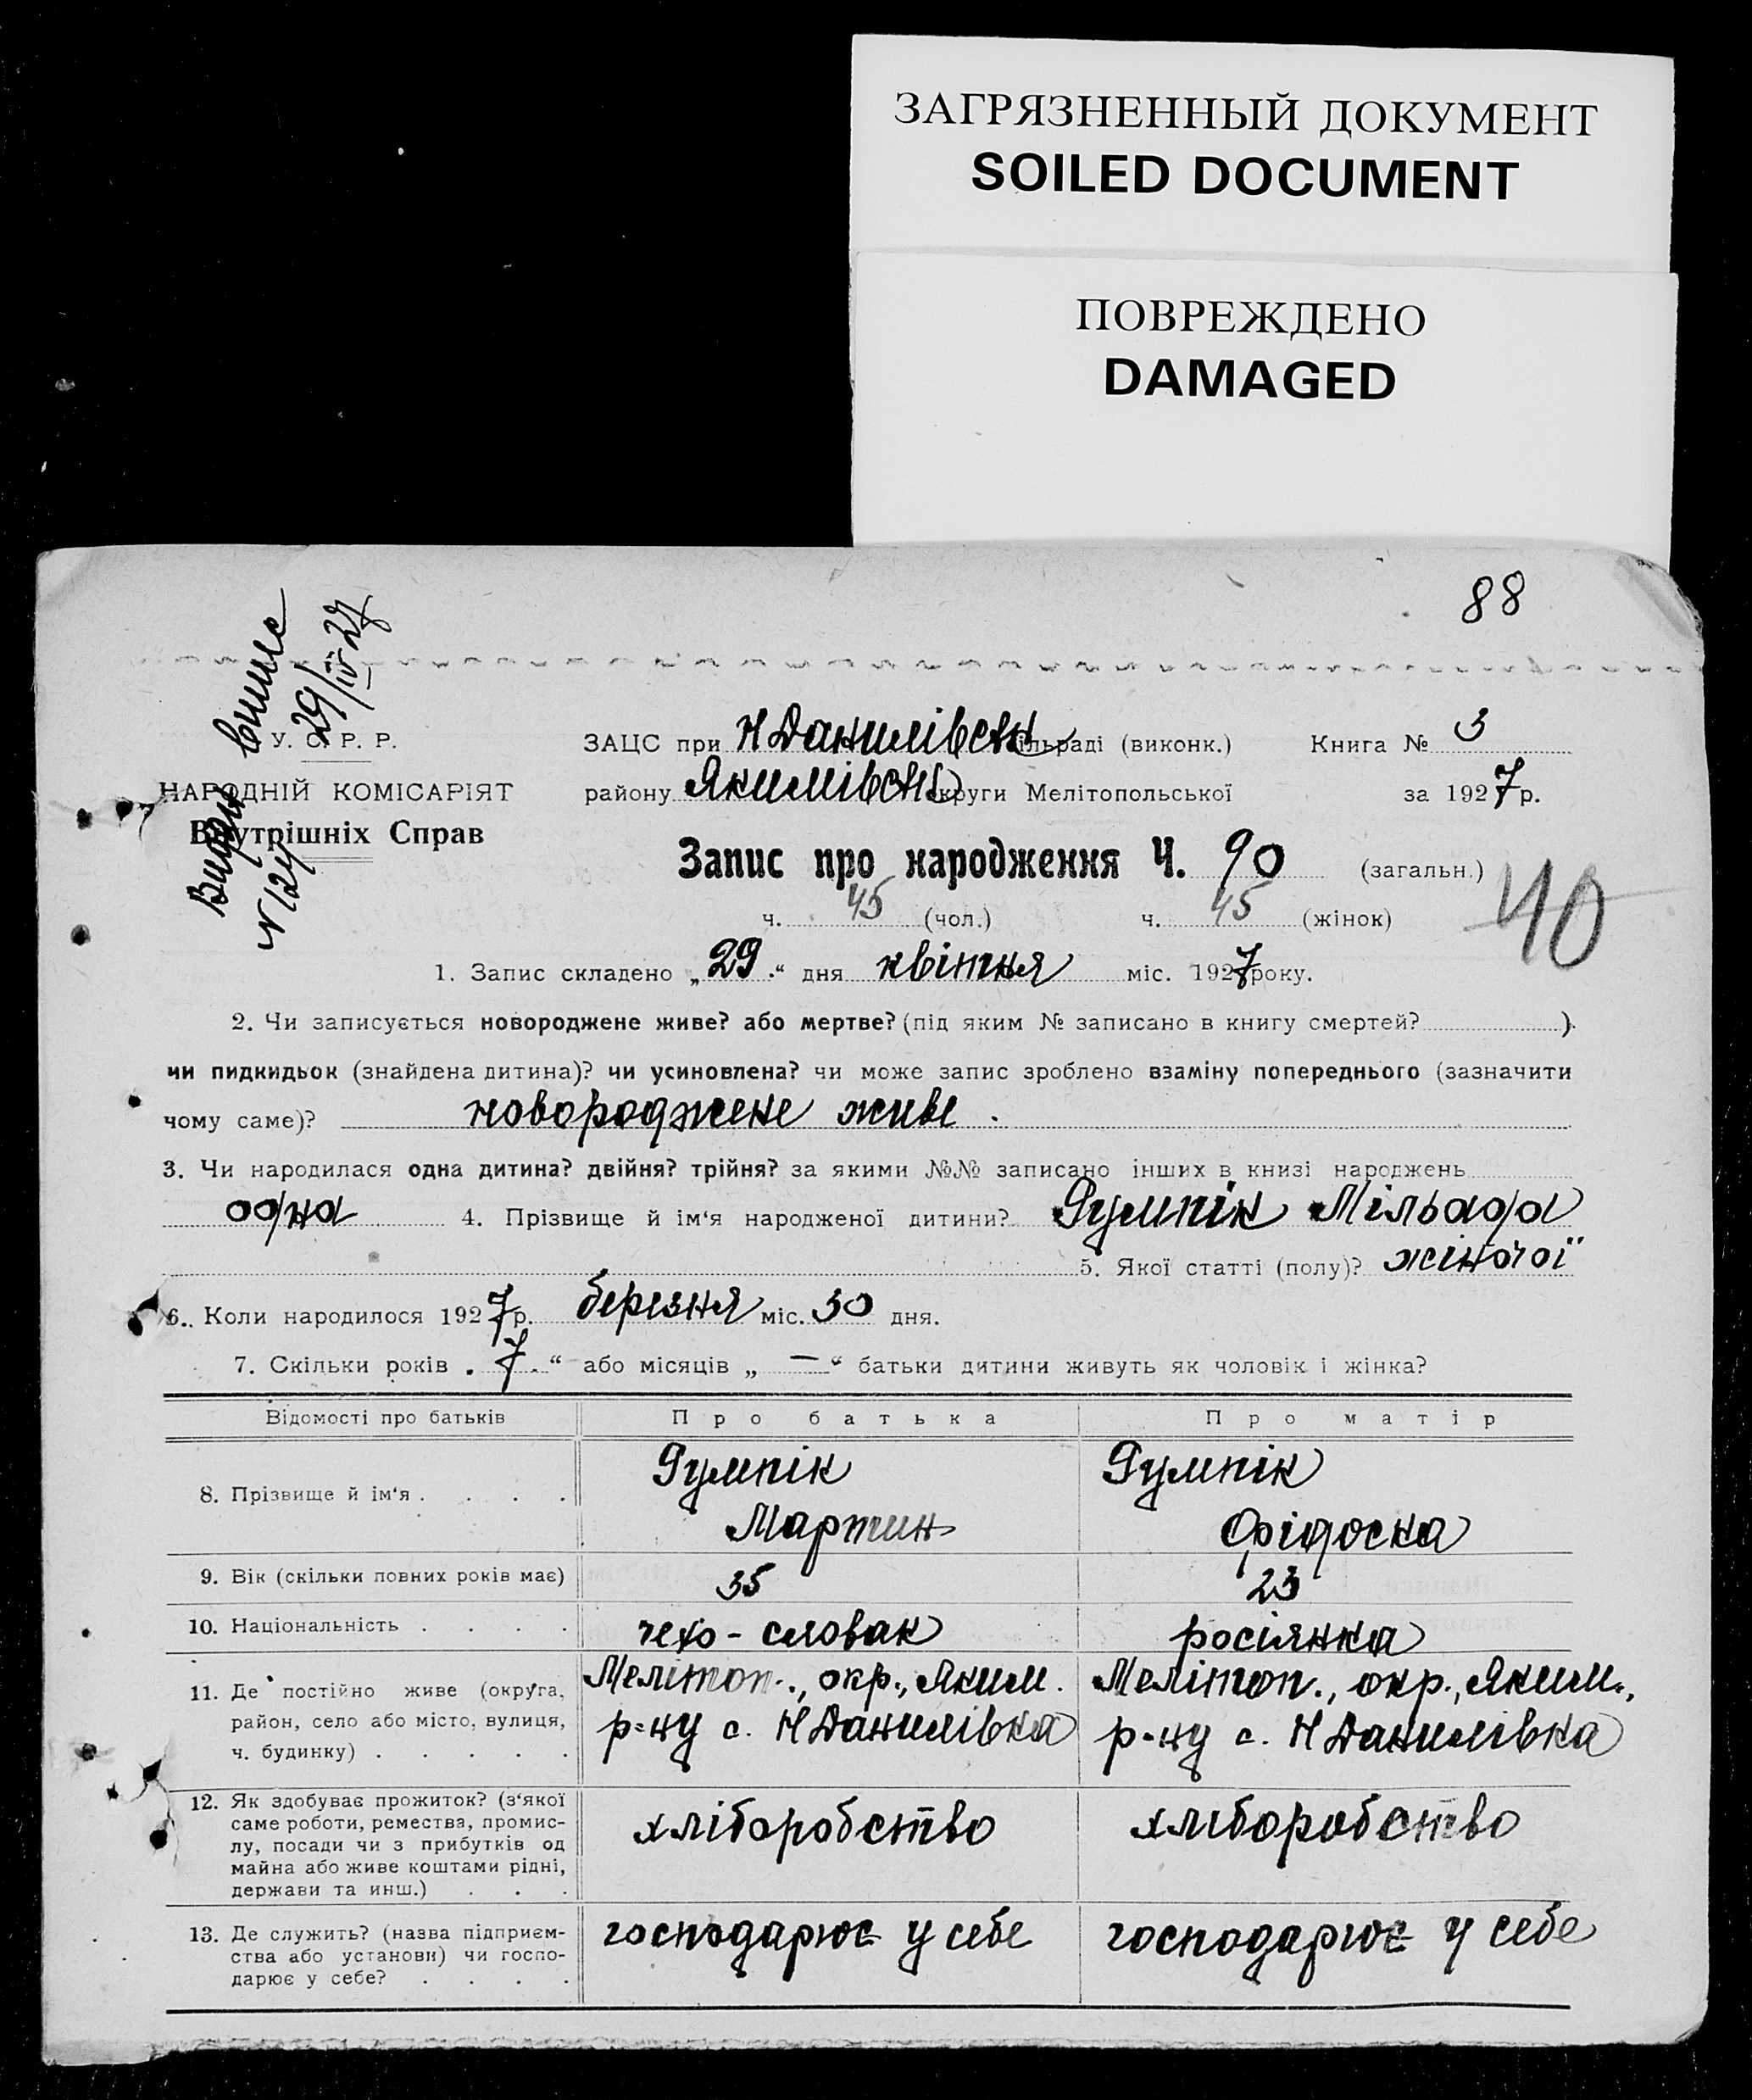 ЗАГРЯЗНЕННЫЙ ДОКУМЕНТ
SOILED DOCUMENT
ПОВРЕЖДЕНО
DAMAGED
88
29/IV 27
У. С. Р. Р.
НАРОДНІЙ КОМІСАРІЯТ
Внутрішніх Справ
№ 124
ЗАЦС при Н Данилівськ сільраді (виконк.) Книга № 3
району Якимівськ округи Мелітопольської за 1927 р.
Запис про народження Ч. 90 (загальн.)
ч. 45 (чол.) ч. 45 (жінок)
40
1. Запис складено „29“ дня квітня міс. 1927 року.
2. Чи записується новороджене живе? або мертве? (під яким № записано в книгу смертей? )
чи пидкидьок (знайдена дитина)? чи усиновлена? чи може запис зроблено взаміну попереднього (зазначити
чому саме)? новороджене живе.
3. Чи народилася одна дитина? двійня? трійня? за якими №№ записано інших в книзі народжень
одна 4. Прізвище й ім‘я народженої дитини? Румпік Мільада
5. Якої статті (полу)? жіночої
6. Коли народилося 1927 р. березня міс. 30 дня.
7. Скільки років „7“ або місяців „—“ батьки дитини живуть як чоловік і жінка?
Відомості про батьків Про батька Про матір
8. Прізвище й ім‘я . . . . Румпік Мартин Румпік Фідоска
9. Вік (скільки повних років має) 35 23
10. Національність . . . . чехо-словак росіянка
11. Де постійно живе (округа, Мелітоп., окр., Яким. Мелітоп., окр., Яким.,
район, село або місто, вулиця, р-ну с. Н Данилівка р-ну с. Н Данилівка
ч. будинку) . . . . .
12. Як здобуває прожиток? (з‘якої
саме роботи, ремества, промис- хліборобство хліборобство
лу, посади чи з прибутків од
майна або живе коштами рідні,
держави та инш.) . . .
13. Де служить? (назва підприєм- господарює у себе господарює у себе
ства або установи) чи госпо-
дарює у себе? . . . .